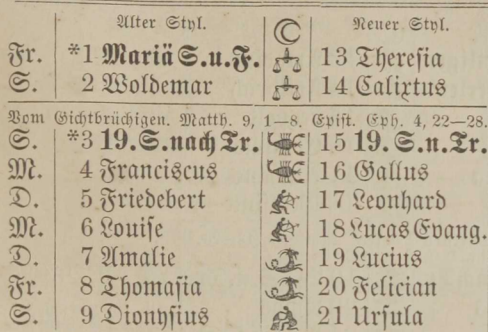 Alter Styl. ☾ Neuer Styl.
Fr. *1 Mariä S.u.F. 13 Theresia
S. 2 Woldemar 14 Calixtus
Vom Gichtbrüchigen. Matth. 9, 1—8. Epist. Eph. 4, 22—28.
S. *3 19.S.nach Tr. 15 19.S.n.Tr.
M. 4 Franciscus 16 Gallus
D. 5 Friedebert 17 Leonhard
M. 6 Louise 18 Lucas Evang.
D. 7 Amalie 19 Lucius
Fr. 8 Thomasia 20 Felician
S. 9 Dionysius 21 Ursula